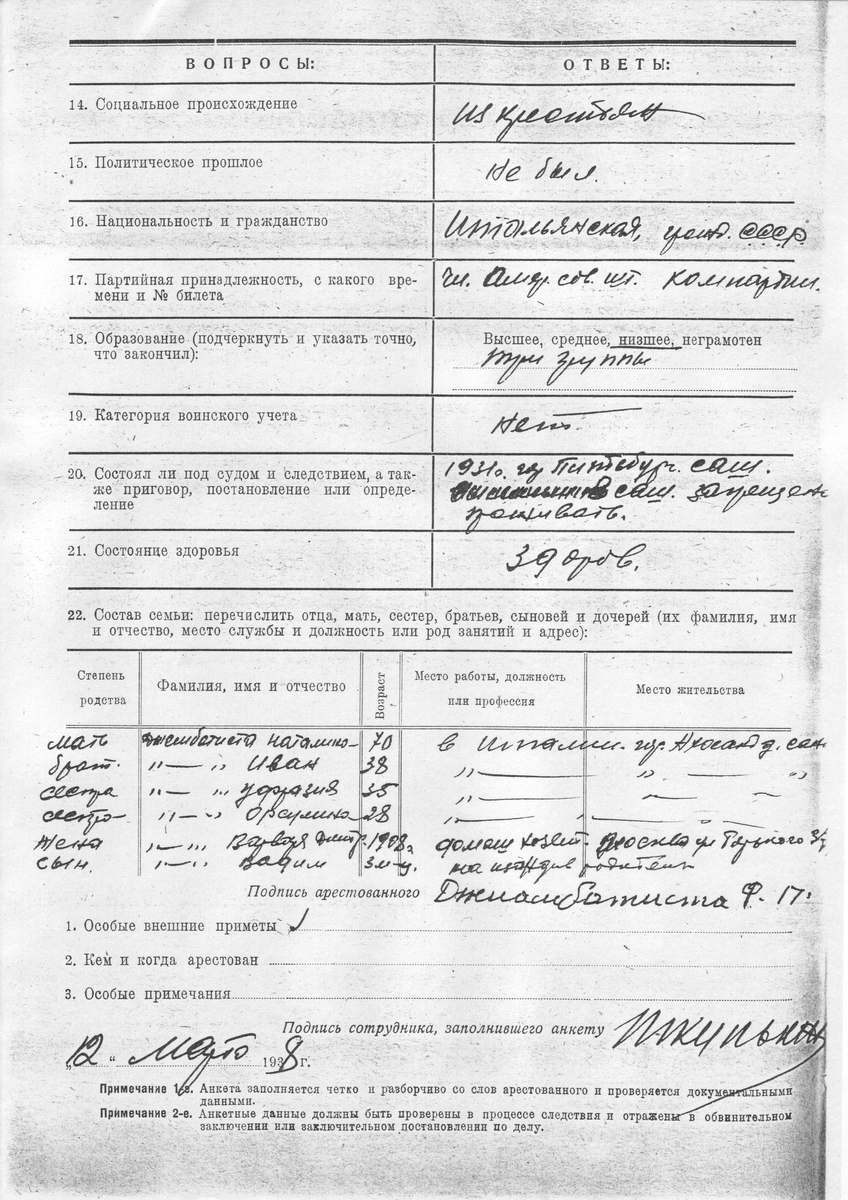 ВОПРОСЫ: ОТВЕТЫ:
14. Социальное происхождение из крестьян
15. Политическое прошлое Не был.
16. Национальность и гражданство Итальянская, гражд. СССР
17. Партийная принадлежность, с какого вре-
мени и № билета Чл. Амер. сов. шт. компартии.
18. Образование (подчеркнуть и указать точно,
что закончил): Высшее, среднее, низшее, неграмотен
три группы
19. Категория воинского учета Нет.
20. Состоял ли под судом и следствием, а так-
же приговор, постановление или опреде-
ление 1931г. гор Питсбург. САШ.
в САШ. запрещен
проживать.
21. Состояние здоровья Здоров.
22. Состав семьи: перечислить отца, мать, сестер, братьев, сыновей и дочерей (их фамилия, имя
и отчество, место службы и должность или род занятий и адрес):
Степень родства Фамилия, имя и отчество Возраст Место работы, должность или профессия Место жительства
мать Джиамбатиста Наталина 70 в Италии. гор.
брат. " — " Иван 38 " — " " — "
сестра " — " Уфразия 35 " — " " — "
сестра " — " Орсулина 28 " — " " — "
жена " — " Варвара Дмитр. 1908г. домаш хозяй. Москва ул Горького
сын. " — " Вадим 3 м-ц. на иждив родителей
Подпись арестованного Джиамбатиста Ф. П.
1. Особые внешние приметы
2. Кем и когда арестован
3. Особые примечания
Подпись сотрудника, заполнившего анкету
„12“ марта 1938 г.
Примечание 1-е. Анкета заполняется четко и разборчиво со слов арестованного и проверяется документальными
данными.
Примечание 2-е. Анкетные данные должны быть проверены в процессе следствия и отражены в обвинительном
заключении или заключительном постановлении по делу.